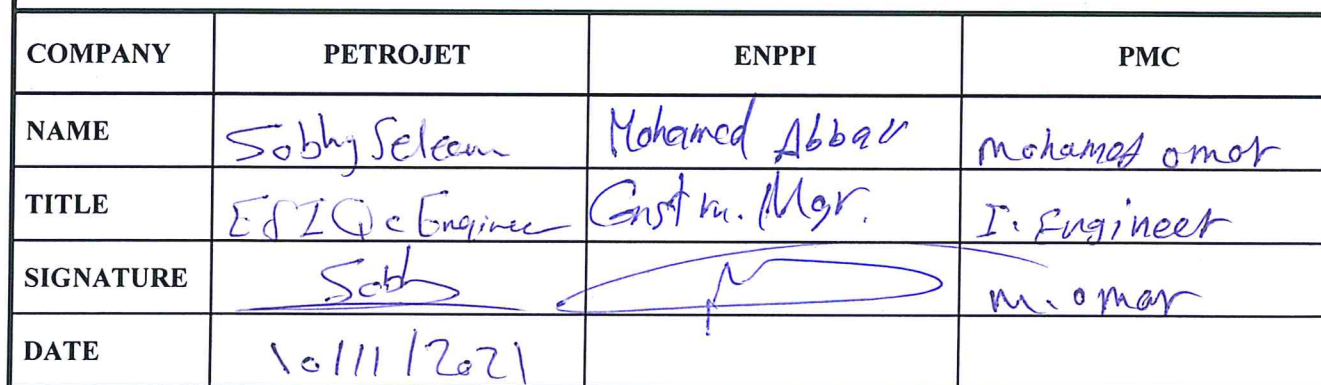 COMPANY PETROJET ENPPI PMC
NAME Sobhy Seleem Mohamed Abbas Mohamed omar
TITLE E&I QC Engineer Constru. Mgr. I. Engineer
SIGNATURE Sobh m. omar
DATE 10/11/2021